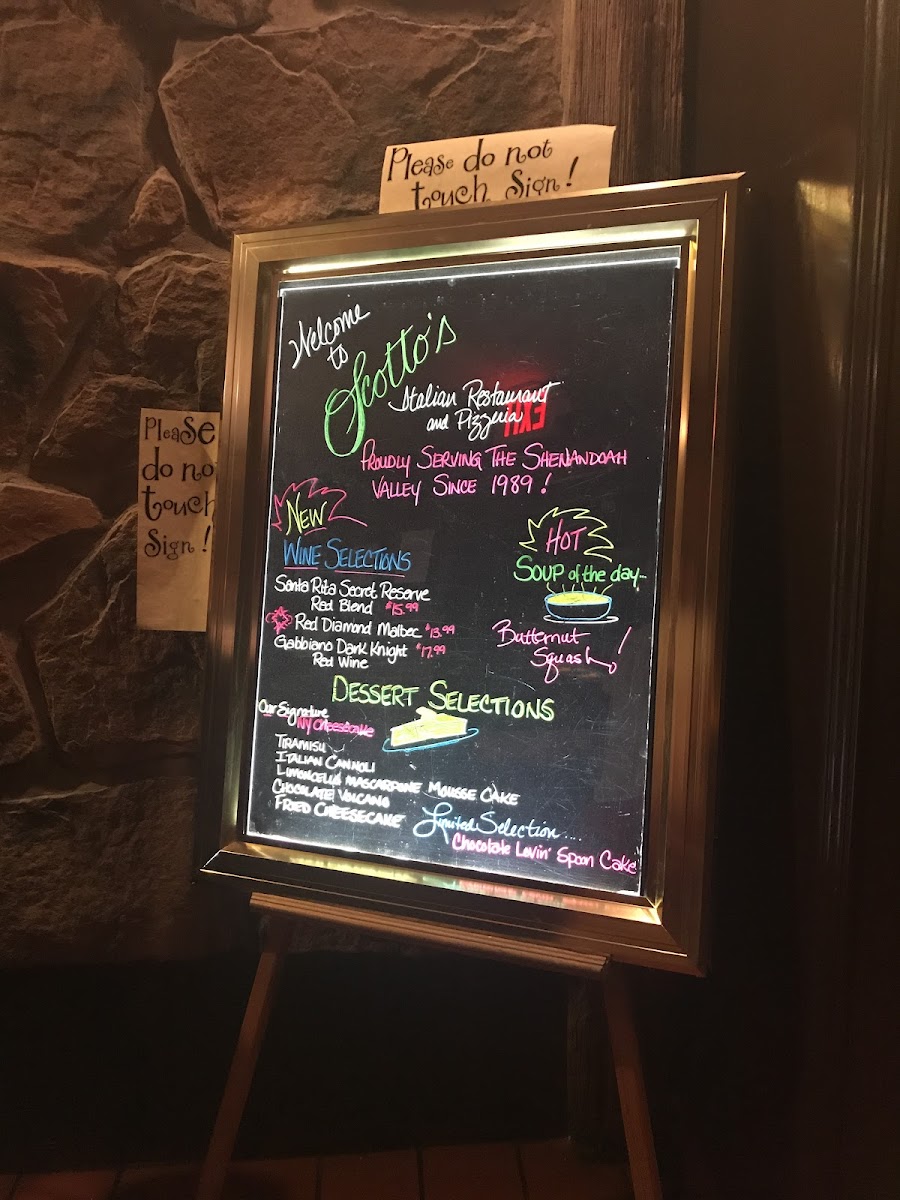 Please do not
touch Sign!
Please
do no
touch
Sign!
Welcome
to
Scotto's
Italian Restaurant
and Pizzeria
EXIT
PROUDLY SERVING THE SHENANDOAH
VALLEY SINCE 1989!
NEW
WINE SELECTIONS
Santa Rita Secret Reserve
Red Blend $15.99
Red Diamond Malbec $13.99
Gabbiano Dark Knight $17.99
Red Wine
HOT
SOUP of the day...
Butternut
Squash!
DESSERT SELECTIONS
Our Signature
NY Cheesecake
TIRAMISU
ITALIAN CANNOLI
LIMONCELLO MASCARPONE MOUSSE CAKE
CHOCOLATE VOLCANO
FRIED CHEESECAKE
Limited Selection....
Chocolate Lovin' Spoon Cake